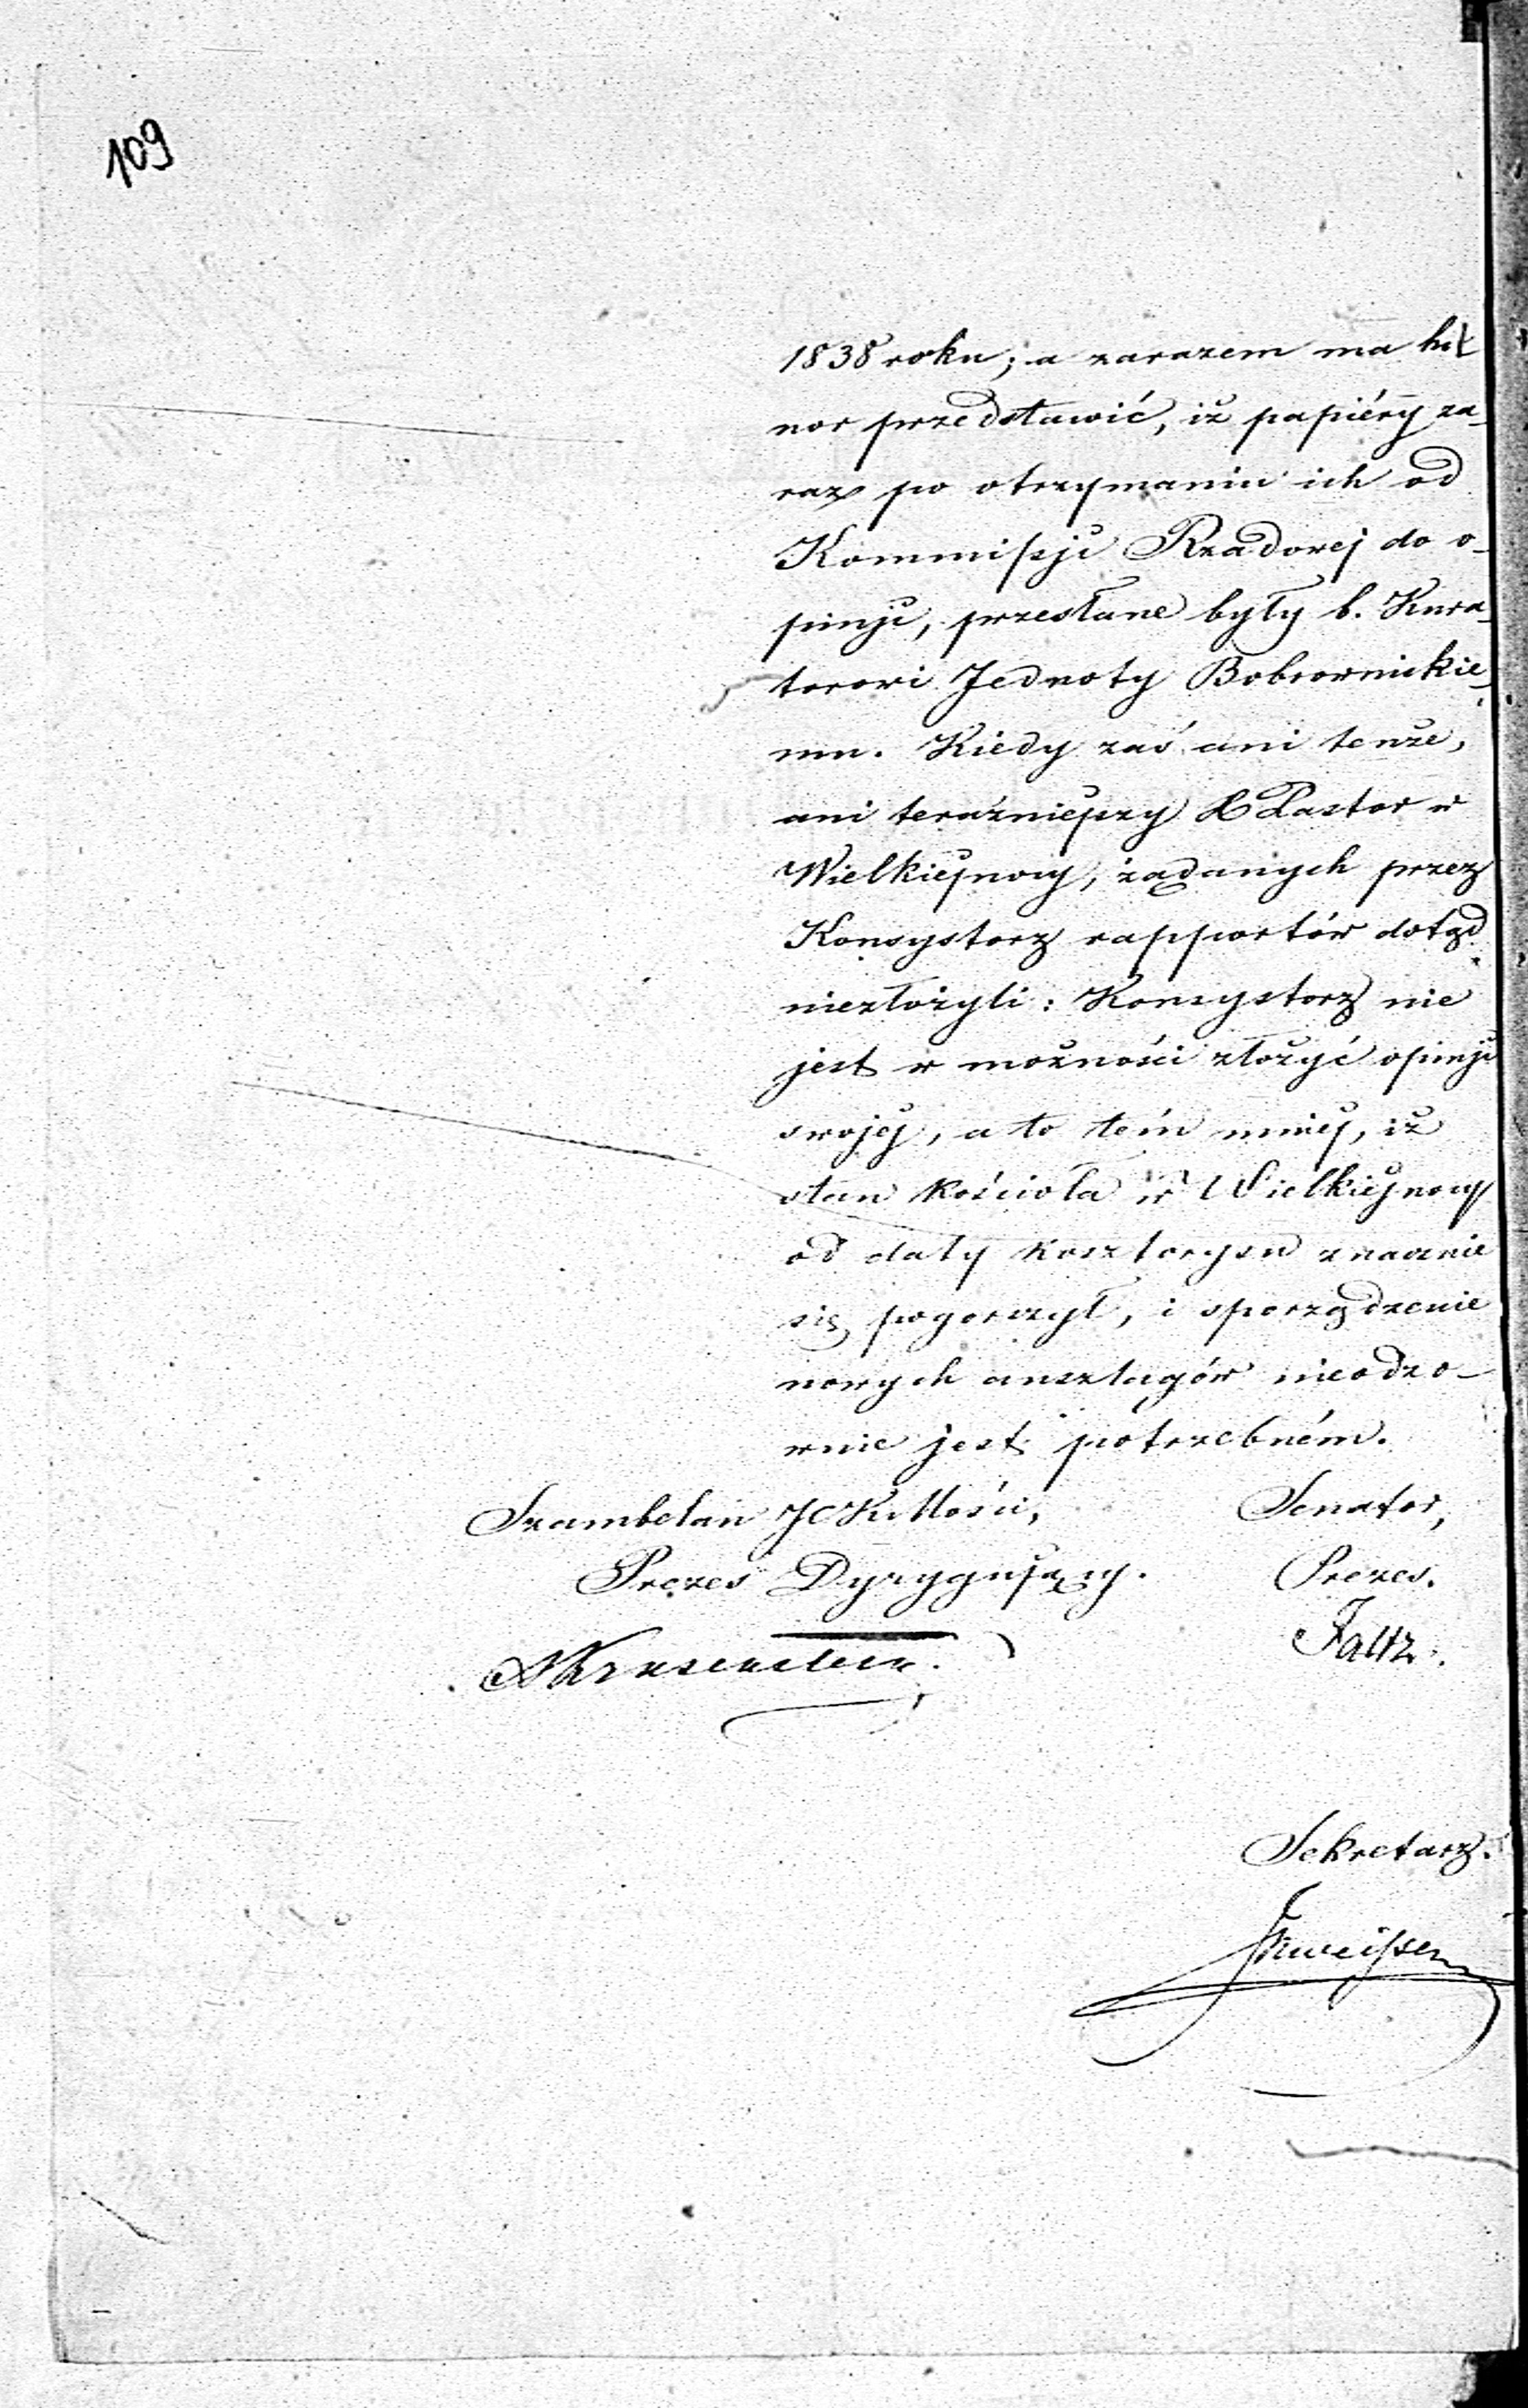 109
1838 roku; a zarazem ma ho
nor przedstawić, iż papiéry za-
raz po otrzymaniu ich od
Kommissji Rządowej do o-
pinji, przesłane były b. Kura-
torowi Jednoty Bobrownickie-
mu. Kiedy zaś ani tenże,
ani teraźniejszy X Pastor w
Wielkiejnocy, żądanych przez
Konsystorz rapportów dotąd
niezłożyli: Konsystorz nie
jest w możności złożyć opinji
swojej, a to tém mniej, iż
stan kościoła w Wielkiejnocy
od daty kosztorysu znacznie
się pogorszył, i sporządzenie
nowych anszlagów nieodzo-
wnie jest potrzebném.
Szambelan JCKMości, Senator,
Prezes Dyrygujący. Prezes.
Faltz.
Sekretarz.